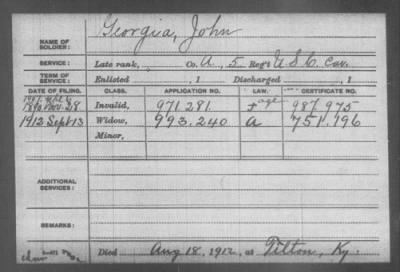 NAME OF SOLDIER: Georgia, John
SERVICE: Late rank, Co. A, 5 Reg't U.S.C. Cav.
TERM OF SERVICE: Enlisted , 1 Discharged , 1
DATE OF FILING. CLASS. APPLICATION NO. LAW. CERTIFICATE NO.
1890 Nov. 28 Invalid, 971 281 age 987 975
1912 Sept 13 Widow, 993.240 a 751.196
Minor,
ADDITIONAL SERVICES:
REMARKS:
Died Aug 18, 1912, at Tilton, Ky.